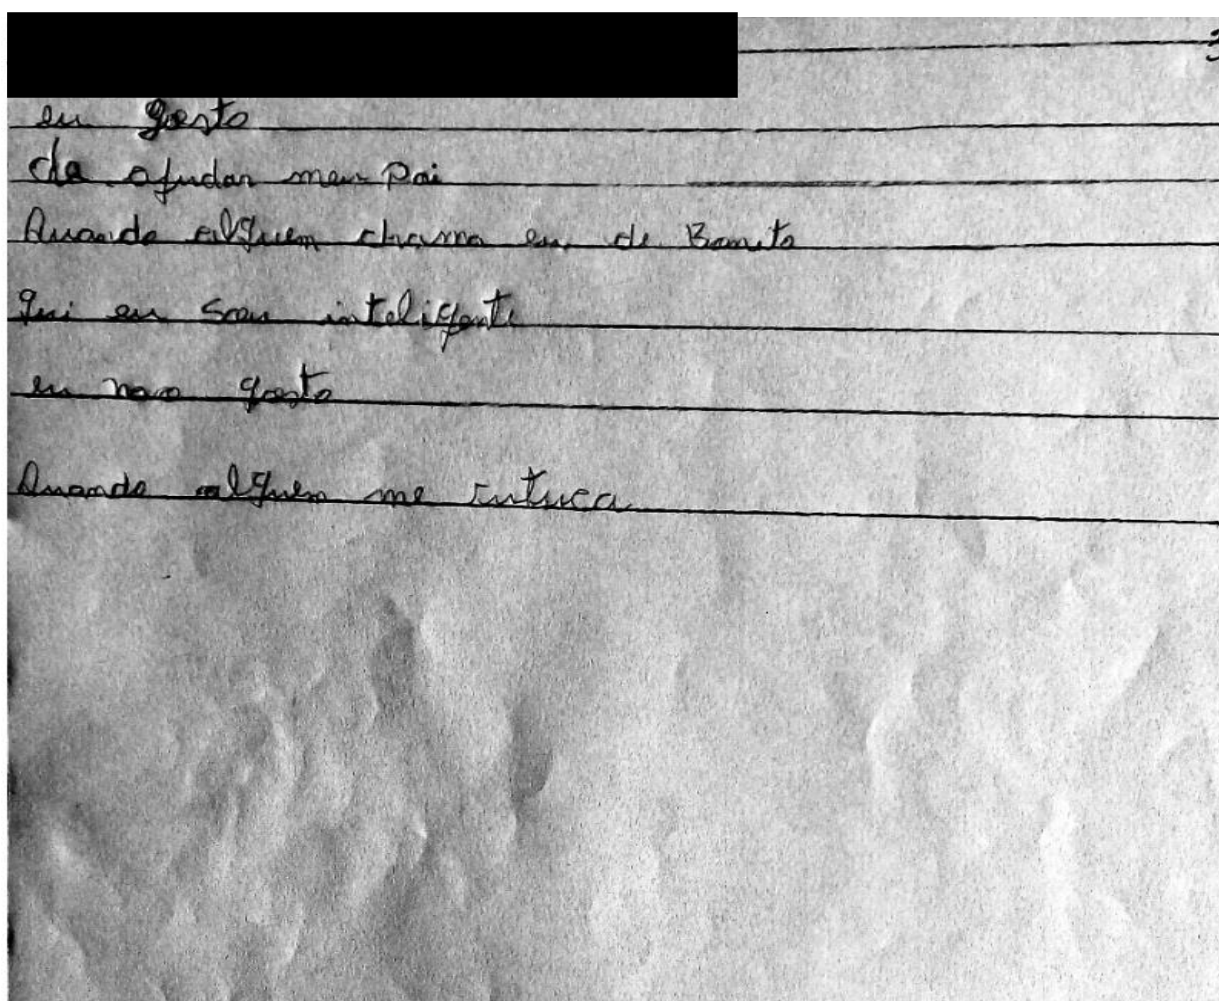 3
eu gosto
da ajudar meu pai
Quando alguem chama eu de Bonito
qui eu sou inteligente
eu nao gosto
Quando alguem me cutuca